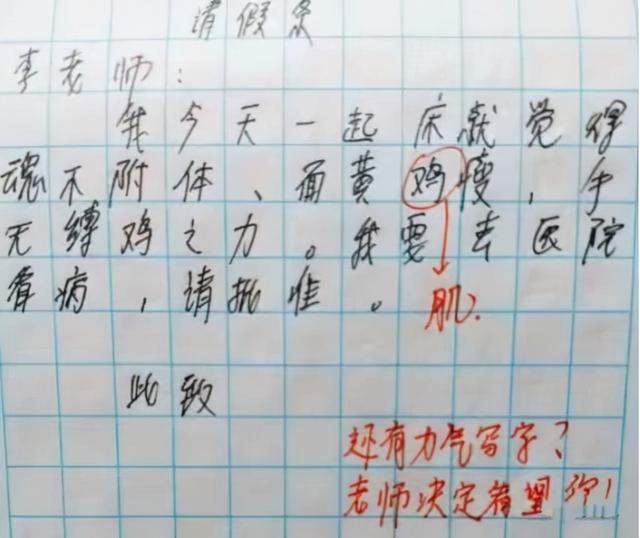 请假条
李老师:
我今天一起床就觉得
魂不附体、面黄鸡瘦,手
无缚鸡之力。我要去医院
看病,请批准。
肌.
此致
还有力气写字?
老师决定看望你!